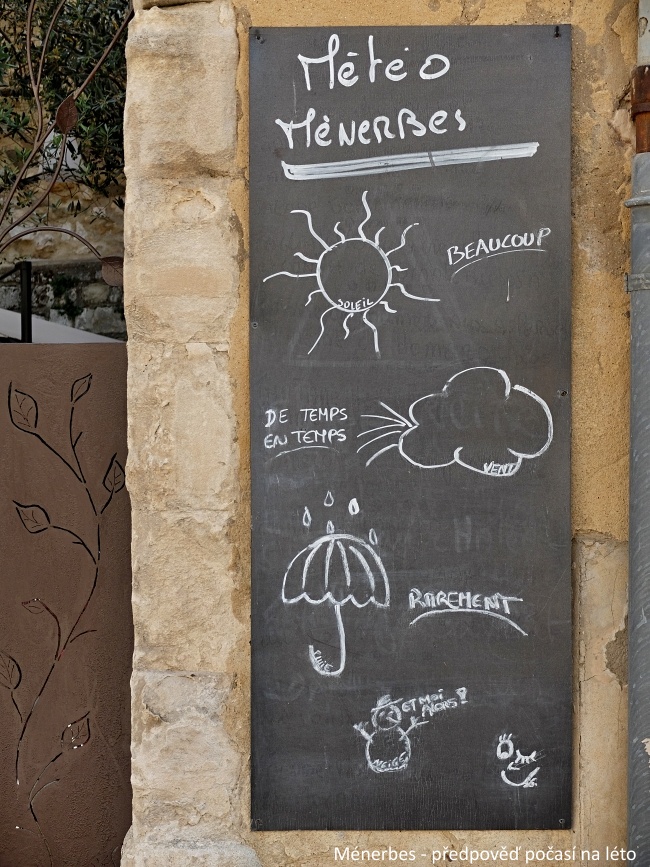 Météo
MÉNERBES
SOLEIL
BEAUCOUP
DE TEMPS
EN TEMPS
VENT
RAREMENT
PLUIE
ET MOI
ALORS ?
NEIGE
Ménerbes - předpověď počasí na léto